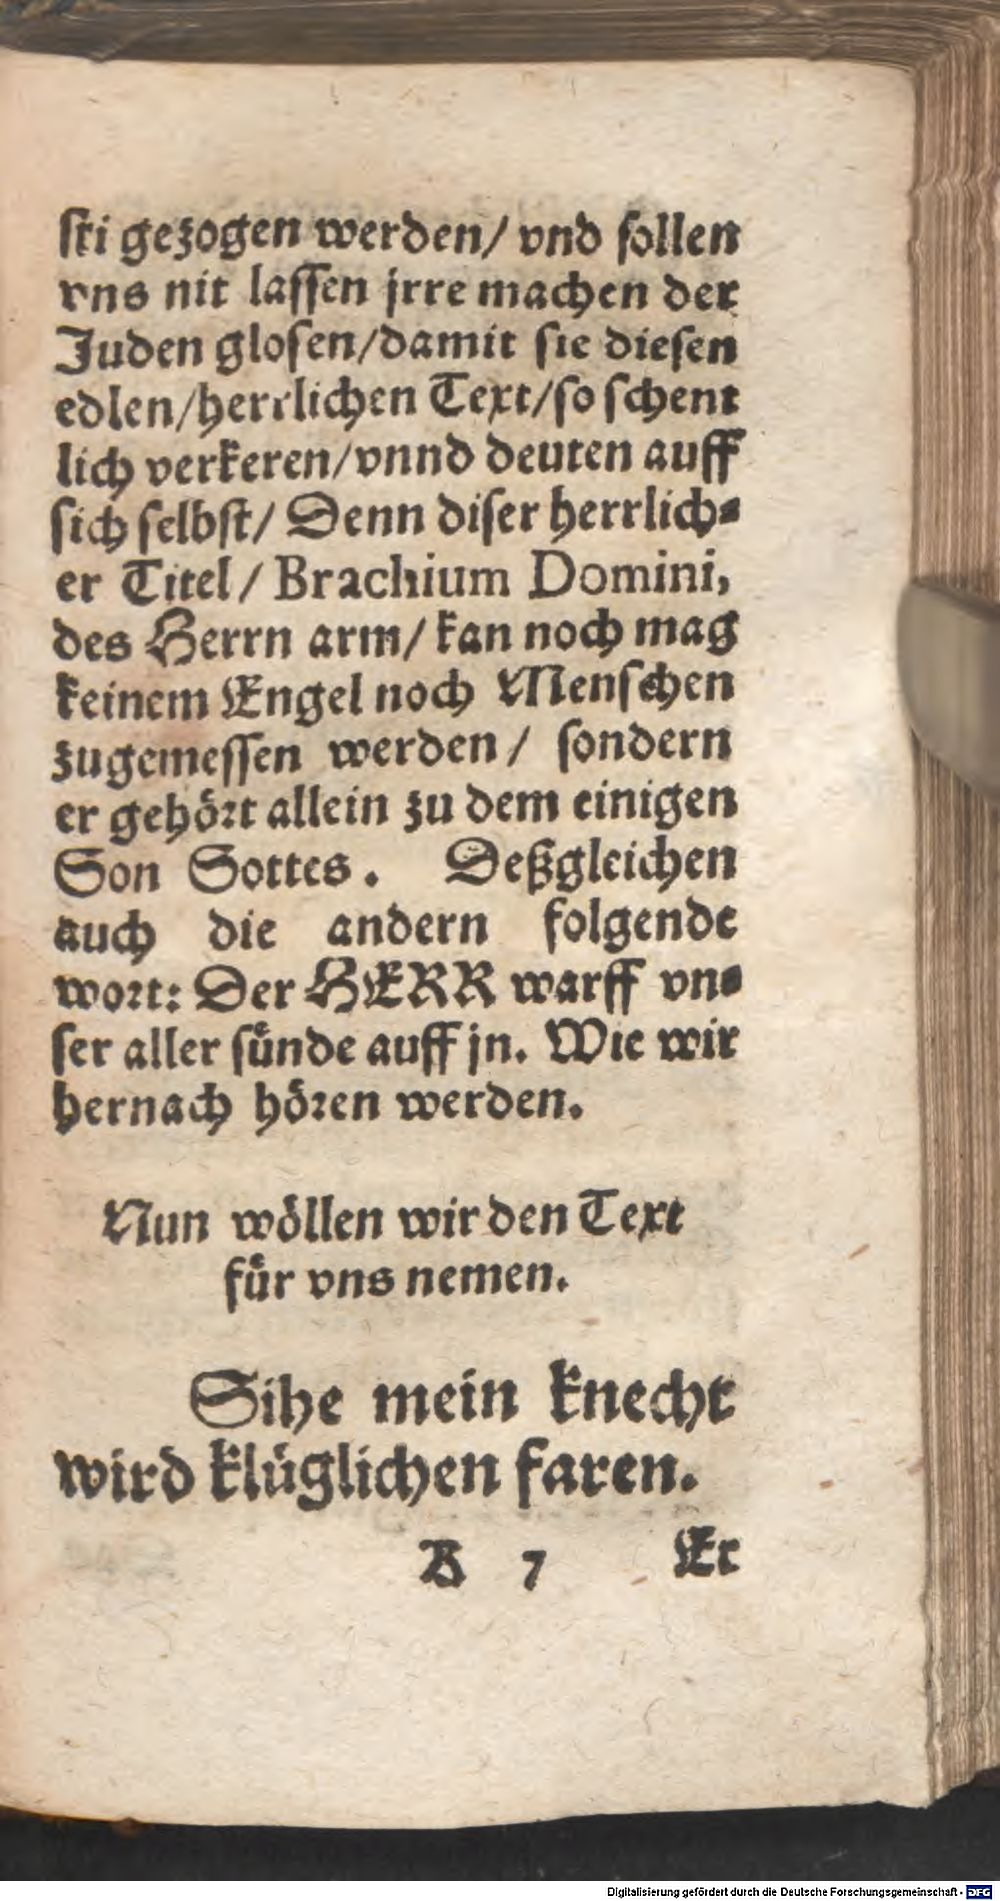 ſti gezogen werden/ vnd ſollen
vns nit laſſen jrre machen der
Juden gloſen/damit ſie dieſen
edlen/herrlichen Text/ſo ſchent
lich verkeren/vnnd deuten auff
ſich ſelbſt/ Denn diſer herrlich⸗
er Titel/ Brachium Domini,
des Herrn arm/ kan noch mag
keinem Engel noch Menſchen
zugemeſſen werden/ ſondern
er gehoͤrt allein zu dem einigen
Son Gottes. Deßgleichen
auch die andern folgende
wort: Der HERR warff vn⸗
ſer aller ſuͤnde auff jn. Wie wir
hernach hoͤren werden.
Nun woͤllen wir den Text
fuͤr vns nemen.
Sihe mein knecht
wird kluͤglichen faren.
B 7 Er
Digitalisierung gefördert durch die Deutsche Forschungsgemeinschaft - DFG